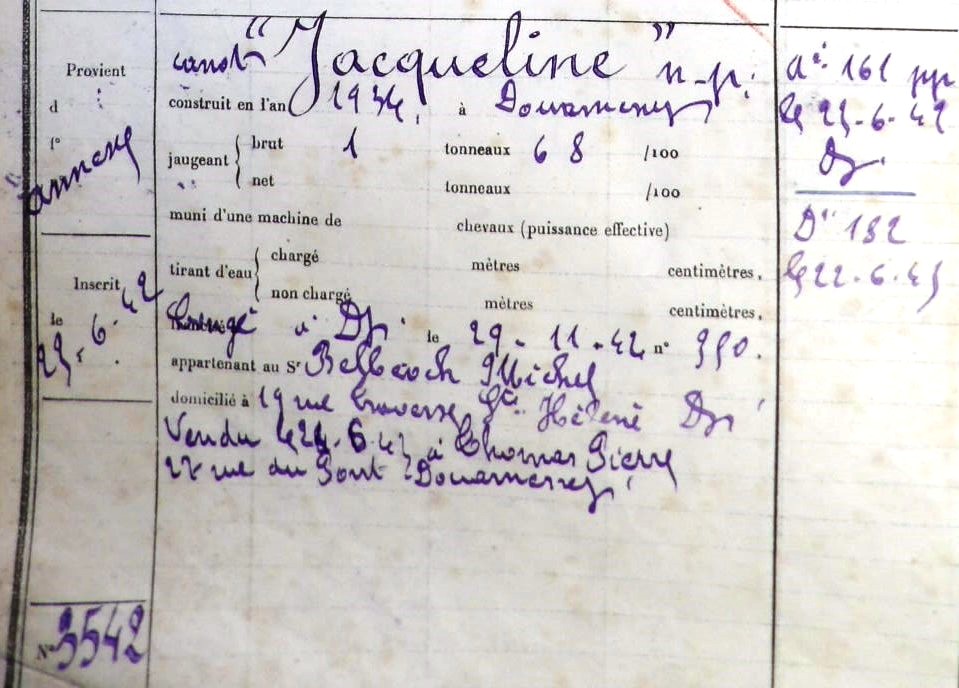 canot "Jacqueline" n-p.
Provient
d
f°
annexe
construit en l'an 1934, à Douarnenez
jaugeant { brut 1 tonneaux 68 /100
net tonneaux /100
muni d'une machine de chevaux (puissance effective)
tirant d'eau { chargé mètres centimètres.
non chargé mètres centimètres.
à Dz le 29-11-42 n° 950.
appartenant au Sr Belbeoch Michel
domicilié à 19 rue traverse Ste Hélène Dz
Vendu le 24.6.43 à Thomas Pierre
27 rue du Pont Douarnenez
Inscrit
le
23.6.42
N° 3542
161 pp
le 23-6-42
Dz
Dt 132
le 22-6-45